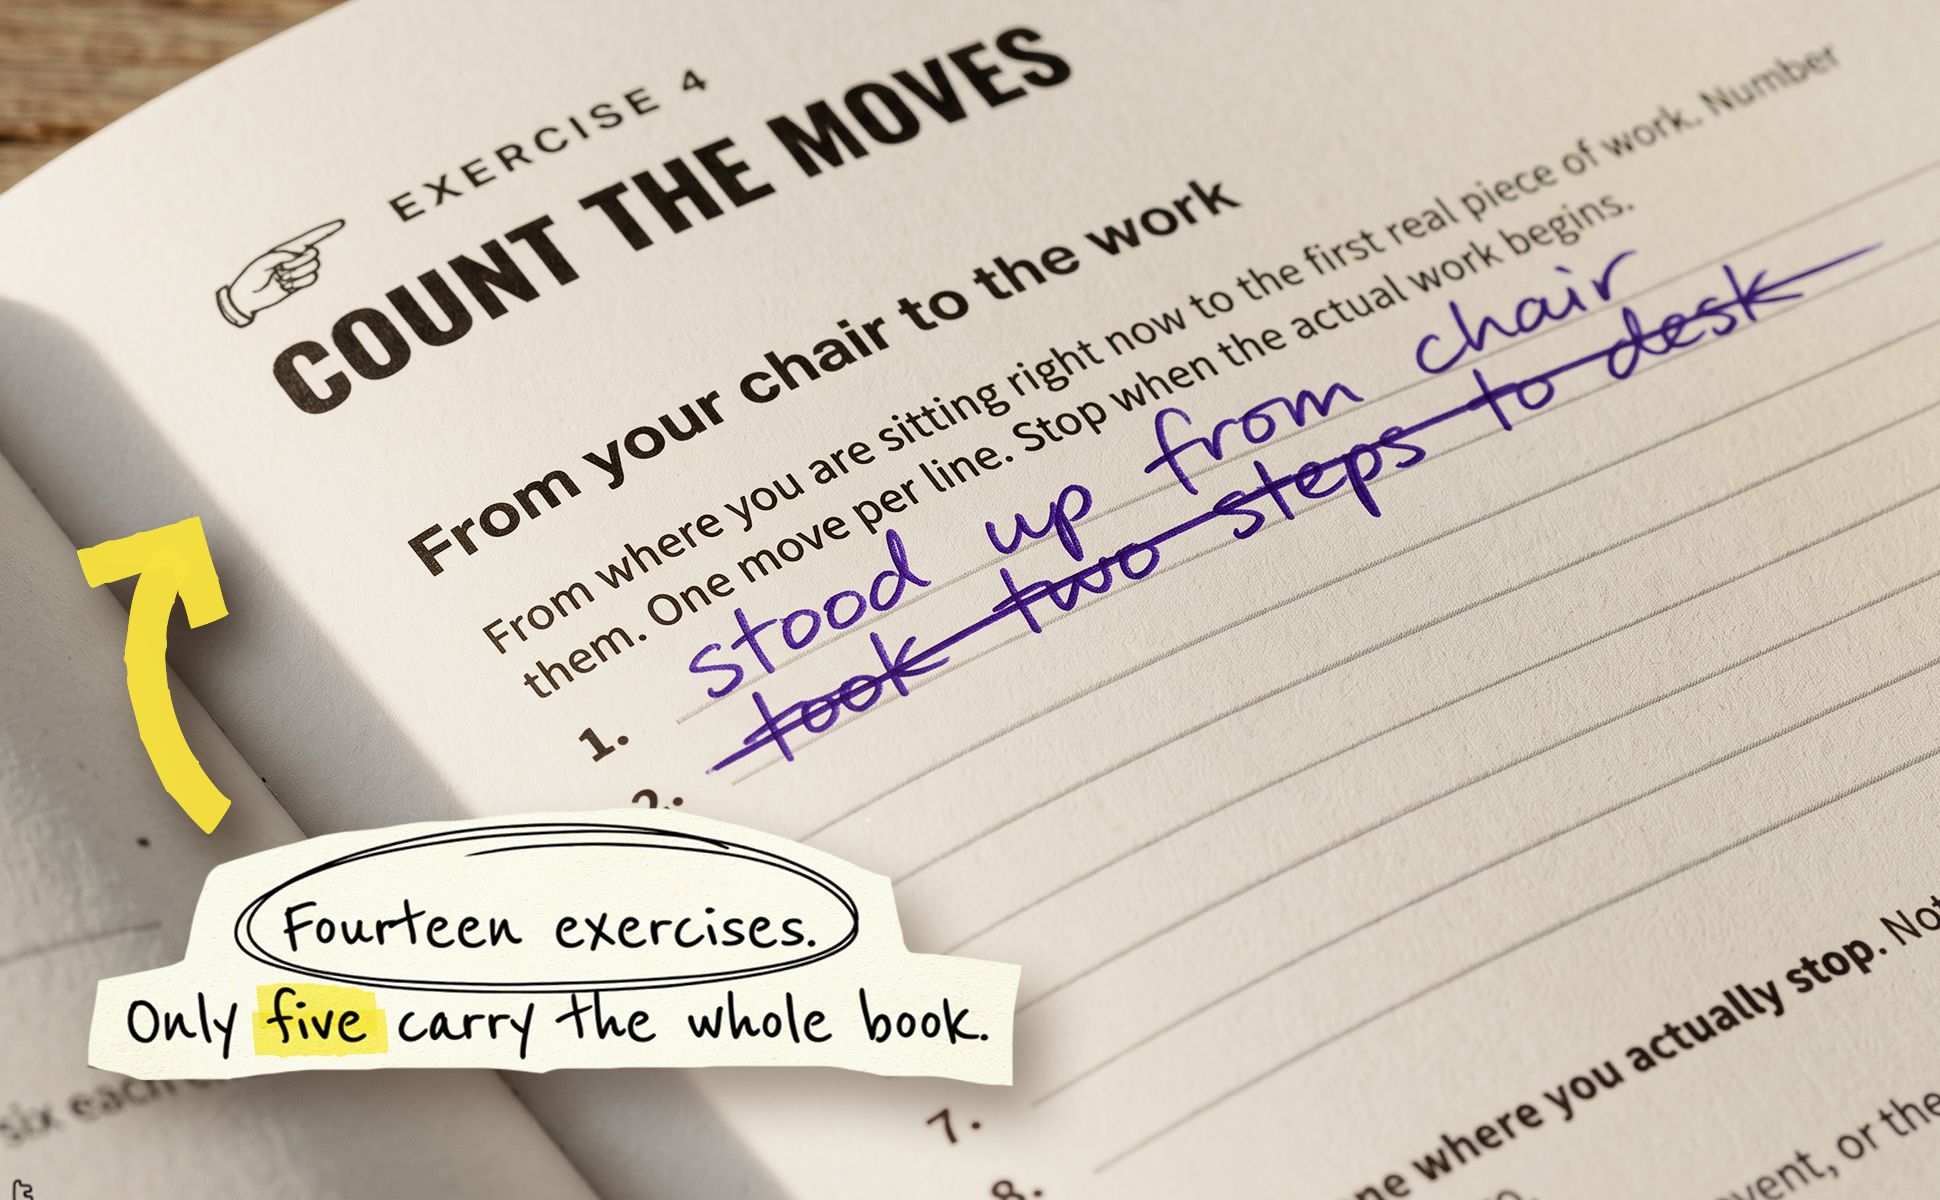 EXERCISE 4
COUNT THE MOVES
From your chair to the work
From where you are sitting right now to the first real piece of work. Number
them. One move per line. Stop when the actual work begins.
1. stood up from chair
2. took two steps to desk
Fourteen exercises.
Only five carry the whole book.
7.
8.
where you actually stop. Not
or the
six each